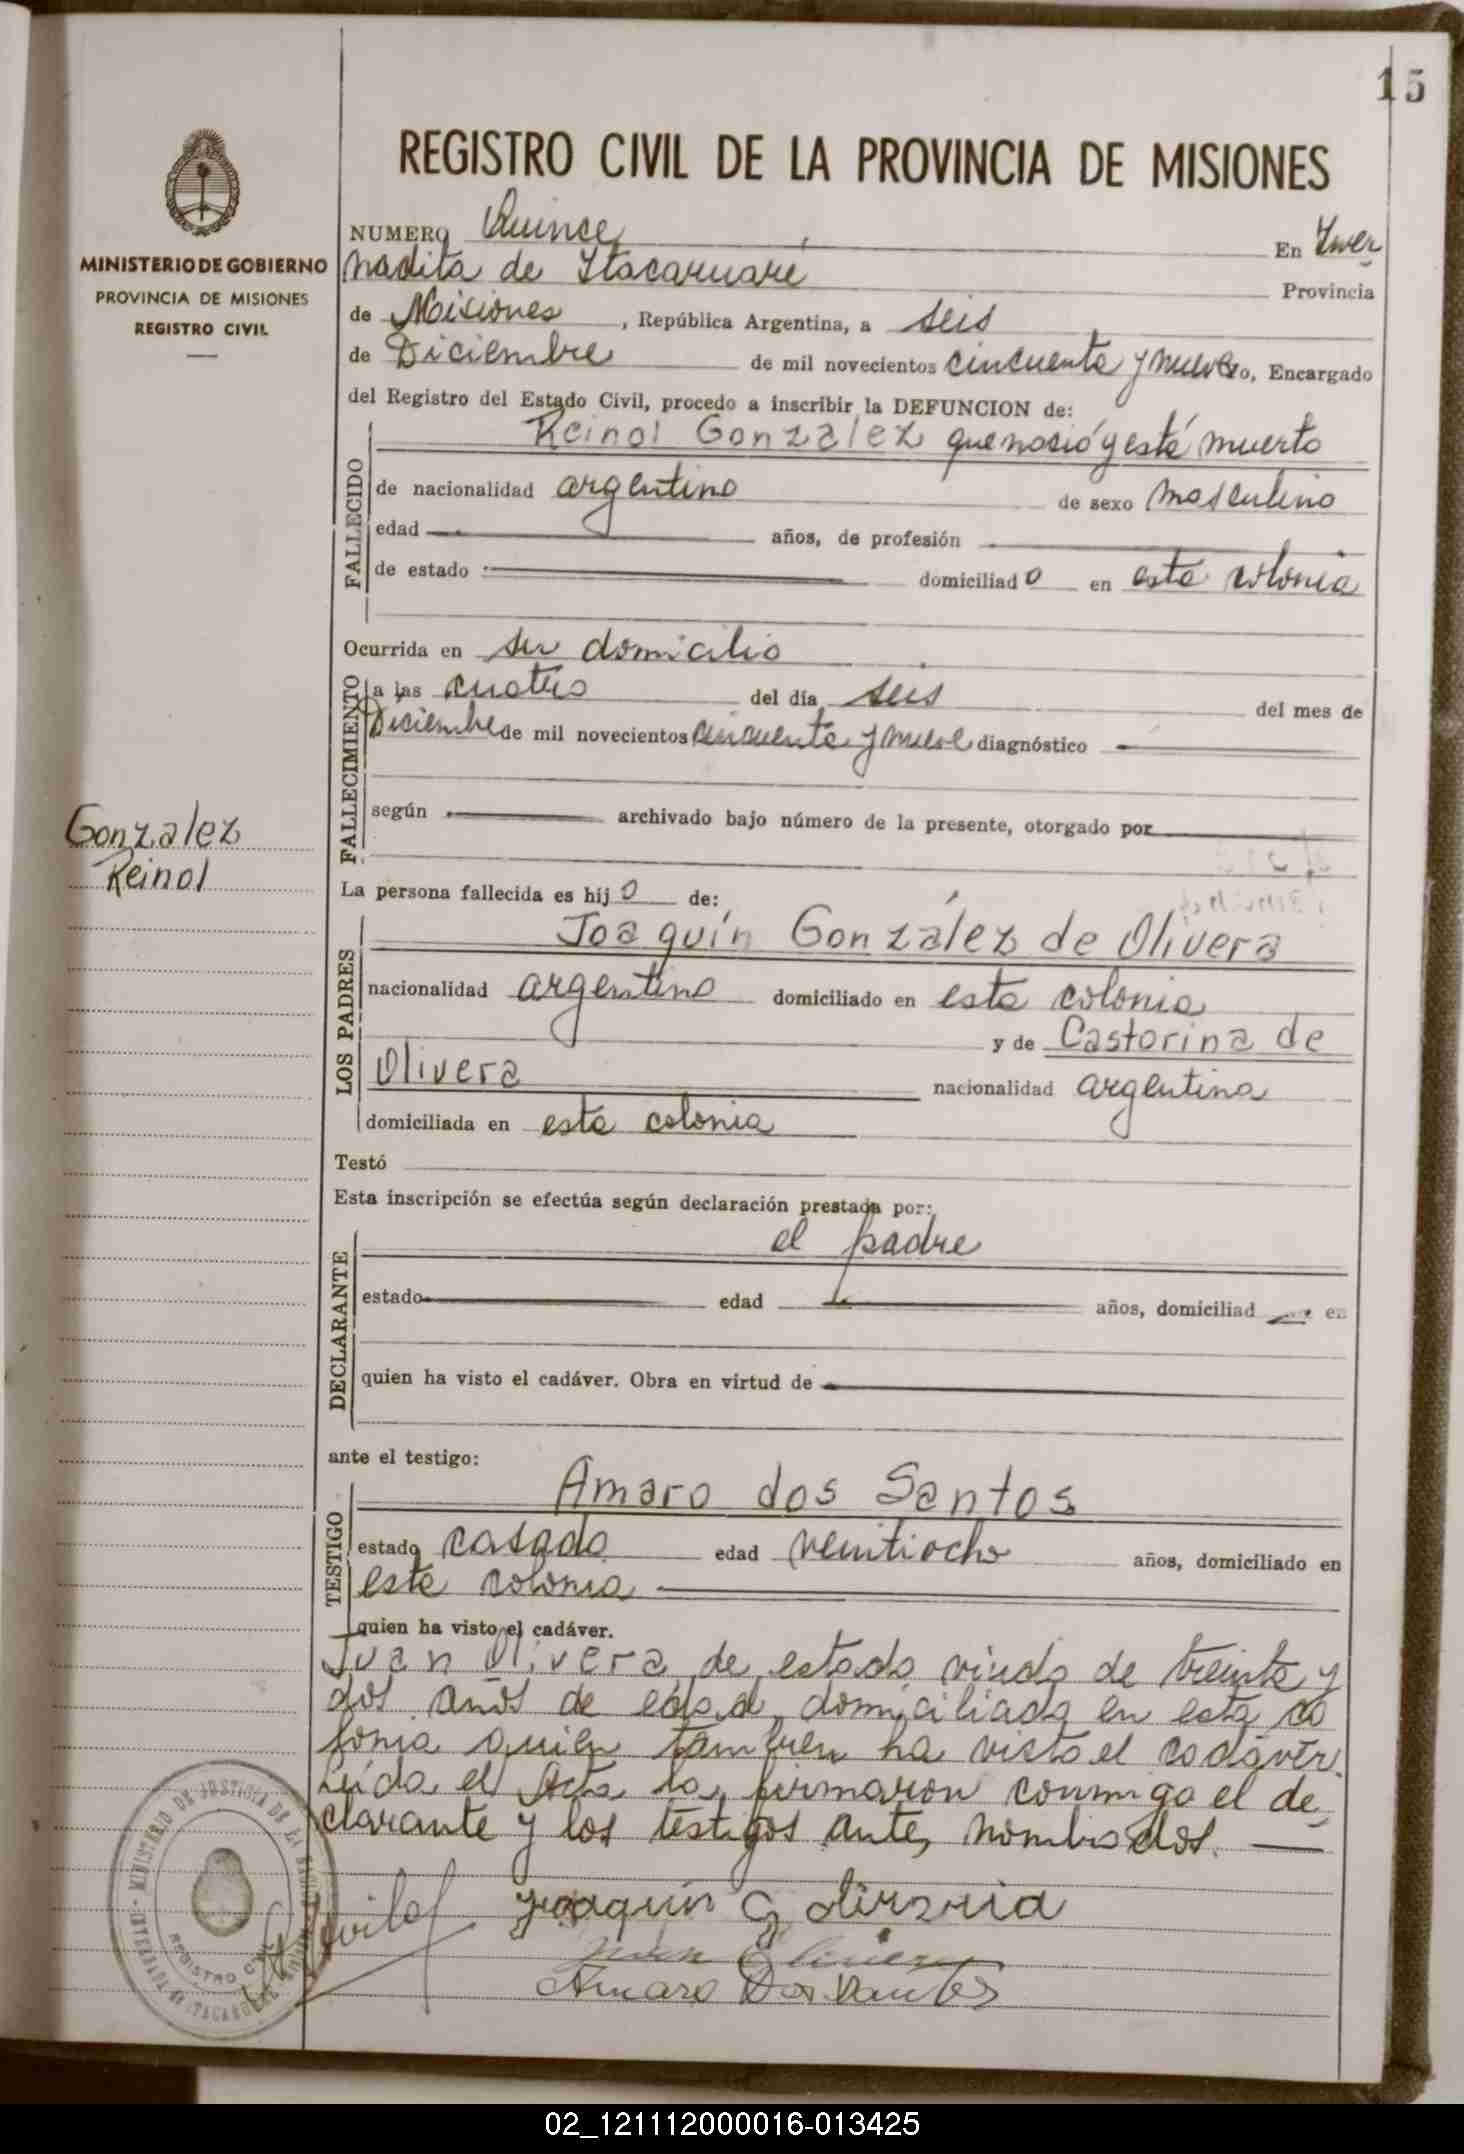 15
REGISTRO CIVIL DE LA PROVINCIA DE MISIONES
MINISTERIO DE GOBIERNO
PROVINCIA DE MISIONES
REGISTRO CIVIL
NUMERO Quince En Yver
nadita de Itacaruaré Provincia
de Misiones, República Argentina, a seis
de Diciembre de mil novecientos cincuenta y nueve yo, Encargado
del Registro del Estado Civil, procedo a inscribir la DEFUNCION de:
FALLECIDO
Reinol Gonzalez que nació y está muerto
de nacionalidad argentino de sexo masculino
edad años, de profesión
de estado domiciliado en esta colonia
Ocurrida en su domicilio
FALLECIMIENTO
a las cuatro del día seis del mes de
Diciembre de mil novecientos cincuenta y nueve diagnóstico
según archivado bajo número de la presente, otorgado por
Gonzalez
Reinol
La persona fallecida es hijo de:
LOS PADRES
Joaquín González de Olivera
nacionalidad argentino domiciliado en esta colonia
y de Castorina de
Olivera nacionalidad argentina
domiciliada en esta colonia
Testó
Esta inscripción se efectúa según declaración prestada por:
DECLARANTE
el padre
estado edad años, domiciliad en
quien ha visto el cadáver. Obra en virtud de
ante el testigo:
TESTIGO
Amaro dos Santos
estado casado edad veintiocho años, domiciliado en
esta colonia
quien ha visto el cadáver.
Juan Olivera de estado viudo de treinta y
dos años de edad domiciliado en esta co
lonia quien tambien ha visto el cadáver.
Leída el Acta la firmaron conmigo el de
clarante y los testigos ante, nombrados.
Joaquin G
Juan Olivera
Amaro Dos Santos
MINISTERIO DE JUSTICIA DE LA
REGISTRO CIVIL
02_121112000016-013425